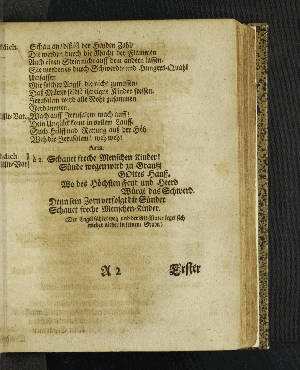 Schau an/daß der Heyden Zahl/
Die werden durch die Macht der Flammen
Auch einen Stein nicht auff dem andern lassen.
Sie werden es durch Schwerdt- und Hungers-Quahl
Verhassen
Mit solcher Angst/ die nicht
Das Mütter selbst ihr eigne Kinder fressen.
Jerusalem wird alle Noht zusammen
Verdammen.
Wach auff Jerusalem wach auff!
Dein Unglück komt in vollem Lauff.
Such Hülff und Rettung aus der Höh
Weh dir Jerusalem! weh weh!
Aria.
à 2. Schauet freche Menschen Kinder!
Sünde wegen wird zu Grauß
GOttes Hauß.
Wo des Höchsten Feur und Heerd
Würgt das Schwerd.
Denn sein Zorn verfolgt die Sünder
Schauet freche Menschen-Kinder.
(Der Engel fähret weg und der Alt-Vater legt sich
wieder nieder in seinem Grabe.)
A 2 Erster